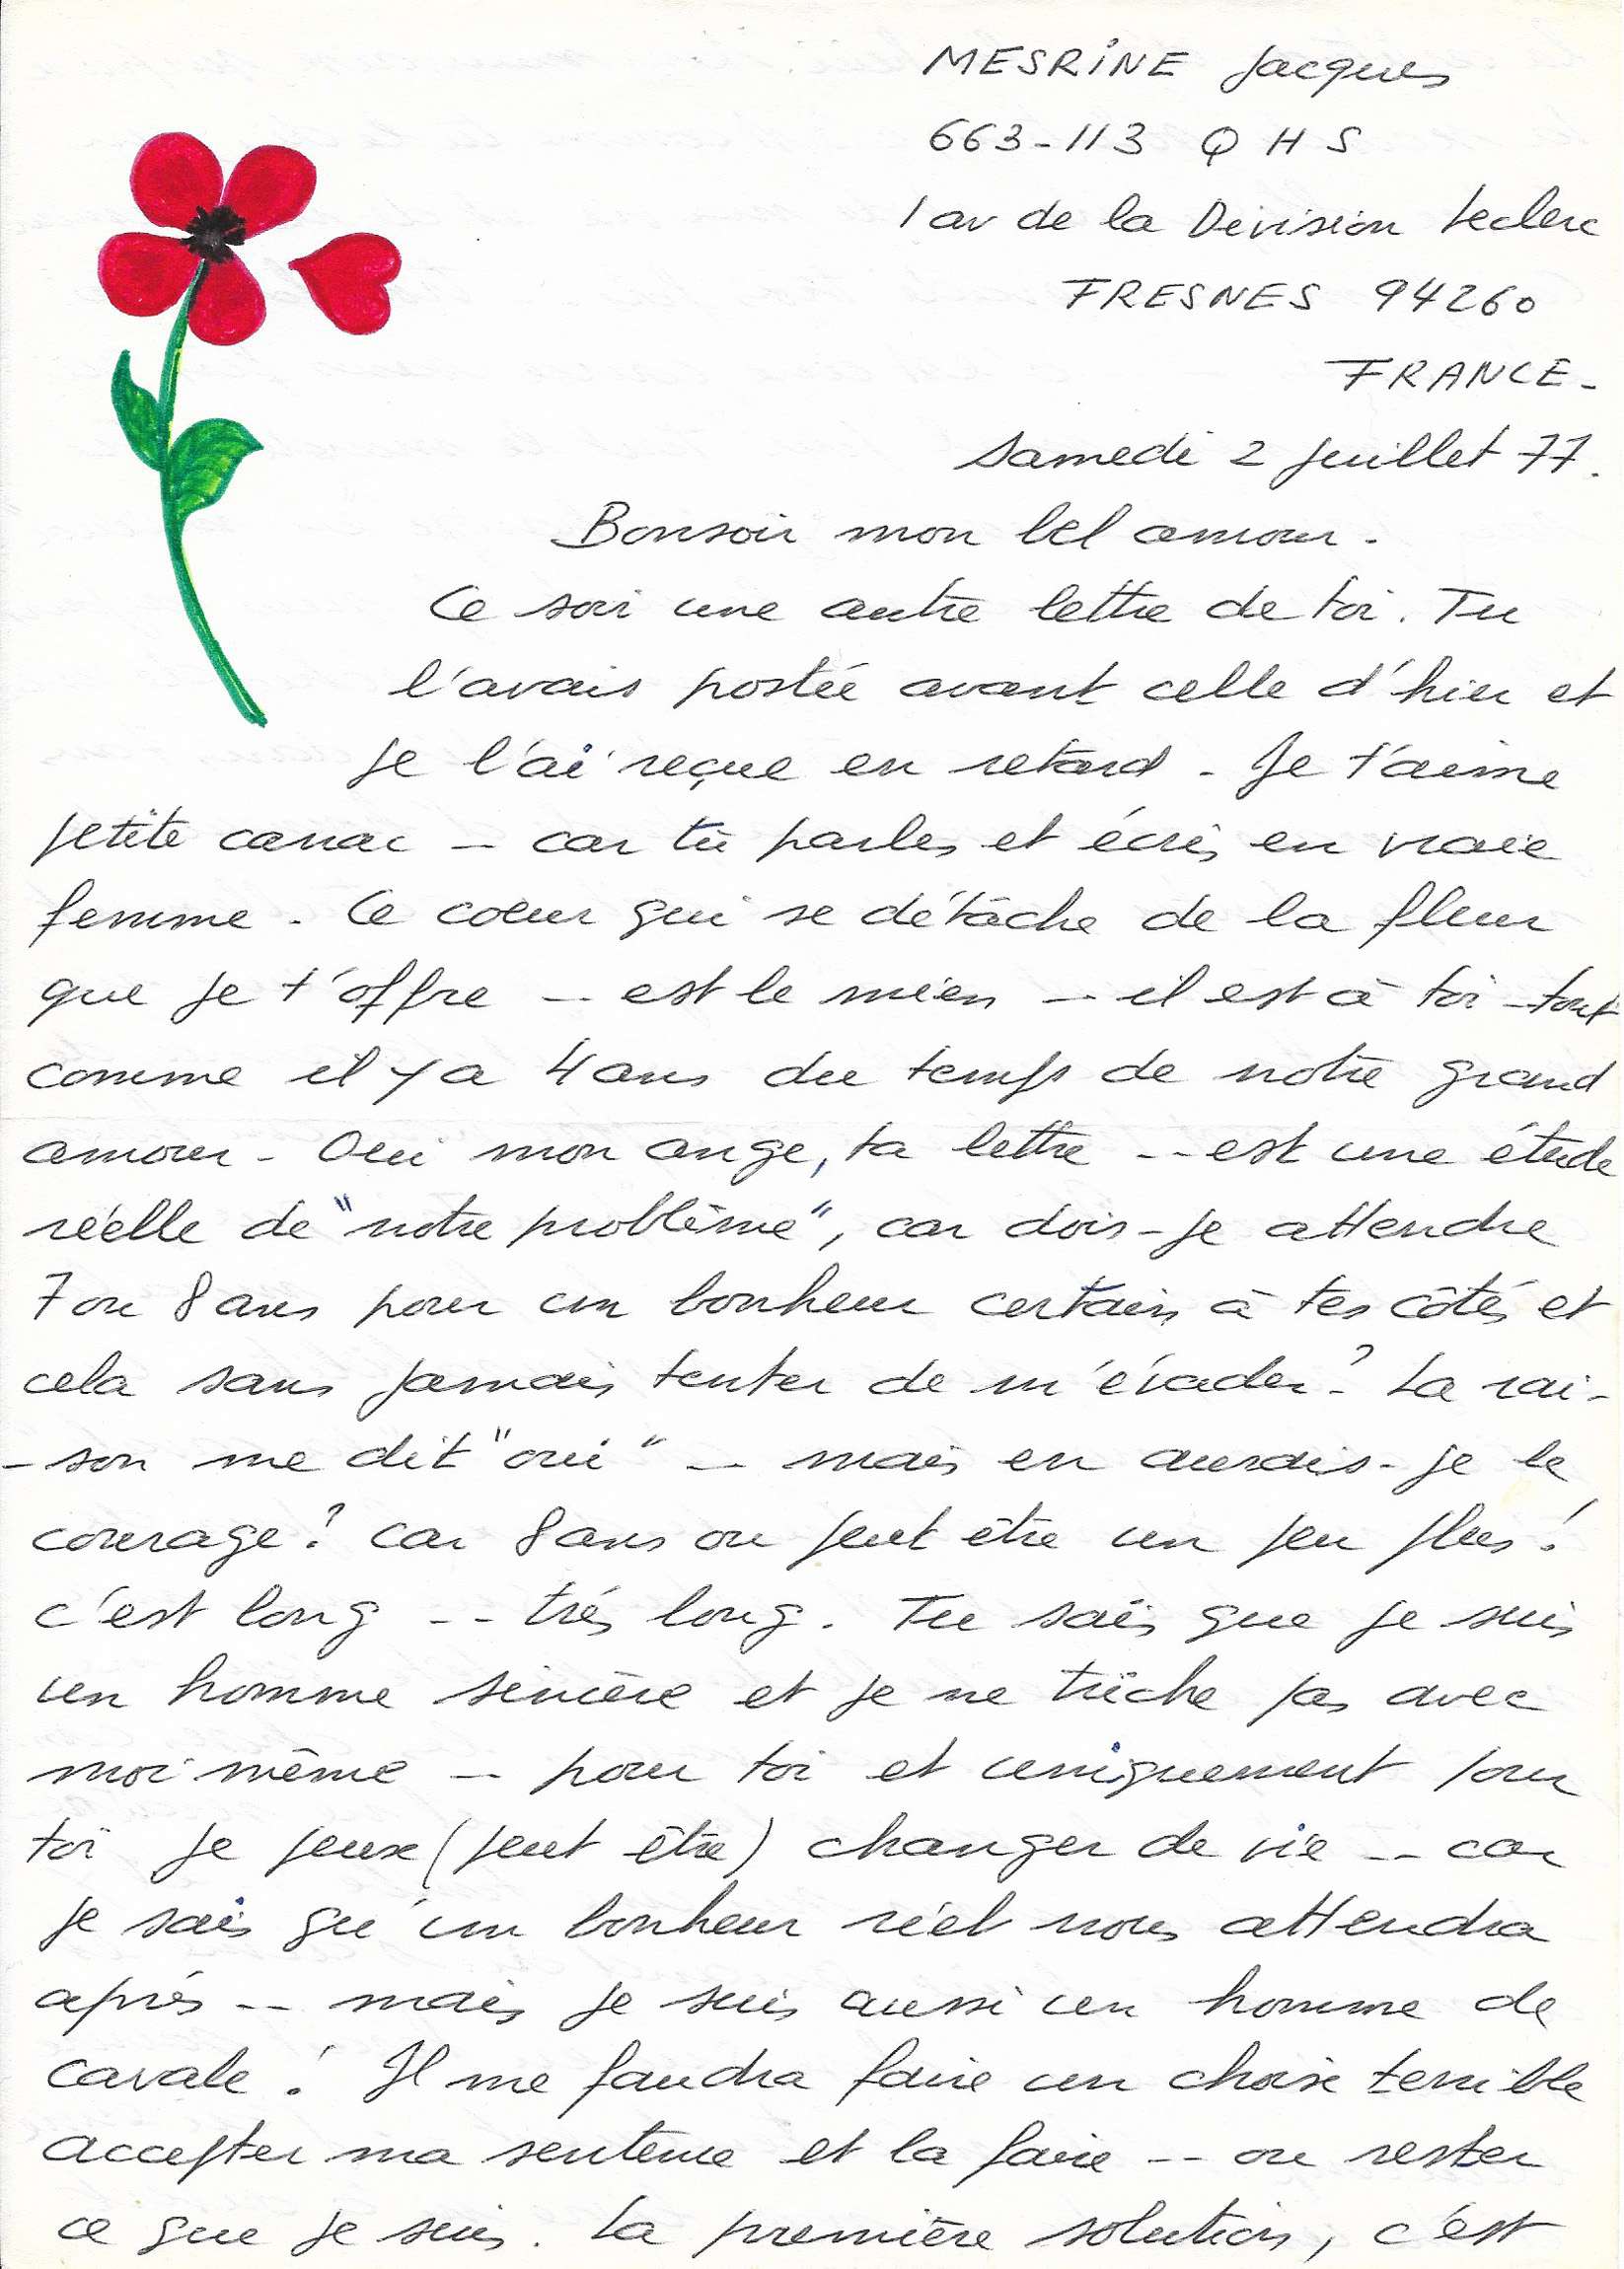 MESRINE Jacques
663-113 Q H S
1 av de la Division Leclerc
FRESNES 94260
FRANCE -
Samedi 2 juillet 77.
Bonsoir mon bel amour -
Ce soir une autre lettre de toi. Tu
l'avais postée avant celle d'hier et
je l'ai reçue en retard - Je t'aime
petite canac -- car tu parles et écris en vraie
femme - Ce coeur qui se détâche de la fleur
que je t'offre -- est le mien -- il est à toi - tout
comme il y a 4 ans du temps de notre grand
amour - Oui mon ange, ta lettre -- est une étude
réelle de "notre problème", car dois-je attendre
7 ou 8 ans pour un bonheur certain à tes côtés et
cela sans jamais tenter de m'évader ? La rai-
-son me dit "oui" -- mais en aurais-je le
courage ? car 8 ans ou peut être un peu plus !
c'est long -- trés long. Tu sais que je suis
un homme sincère et je ne triche pas avec
moi même -- pour toi et uniquement pour
toi je peux (peut être) changer de vie -- car
je sais qu'un bonheur réel nous attendra
après -- mais je suis aussi un homme de
cavale ! Il me faudra faire un choix terrible
accepter ma sentence et la faire -- ou rester
ce que je suis. La première solution, c'est